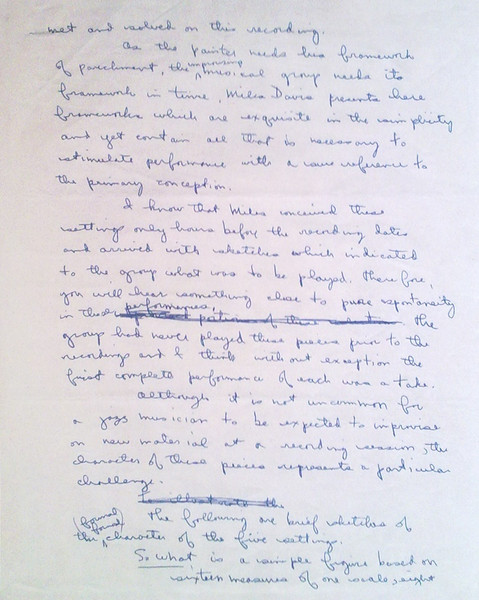 met and solved on this recording.
As the painter needs his framework
of parchment, the improvising musical group needs its
framework in time. Miles Davis presents here
frameworks which are exquisite in their simplicity
and yet contain all that is necessary to
stimulate performance with a sure reference to
the primary conception.
I know that Miles conceived these
settings only hours before the recording dates
and arrived with sketches which indicated
to the group what was to be played. Therefore,
you will hear something close to pure spontaneity
in these performances. The
group had never played these pieces prior to the
recordings and I think without exception the
first complete performance of each was a take.
Although it is not uncommon for
a jazz musician to be expected to improvise
on new material at a recording session, the
character of these pieces represents a particular
challenge.
To illustrate the
The following are brief sketches of
the formal character of the five settings.
So What is a simple figure based on
sixteen measures of one scale, eight